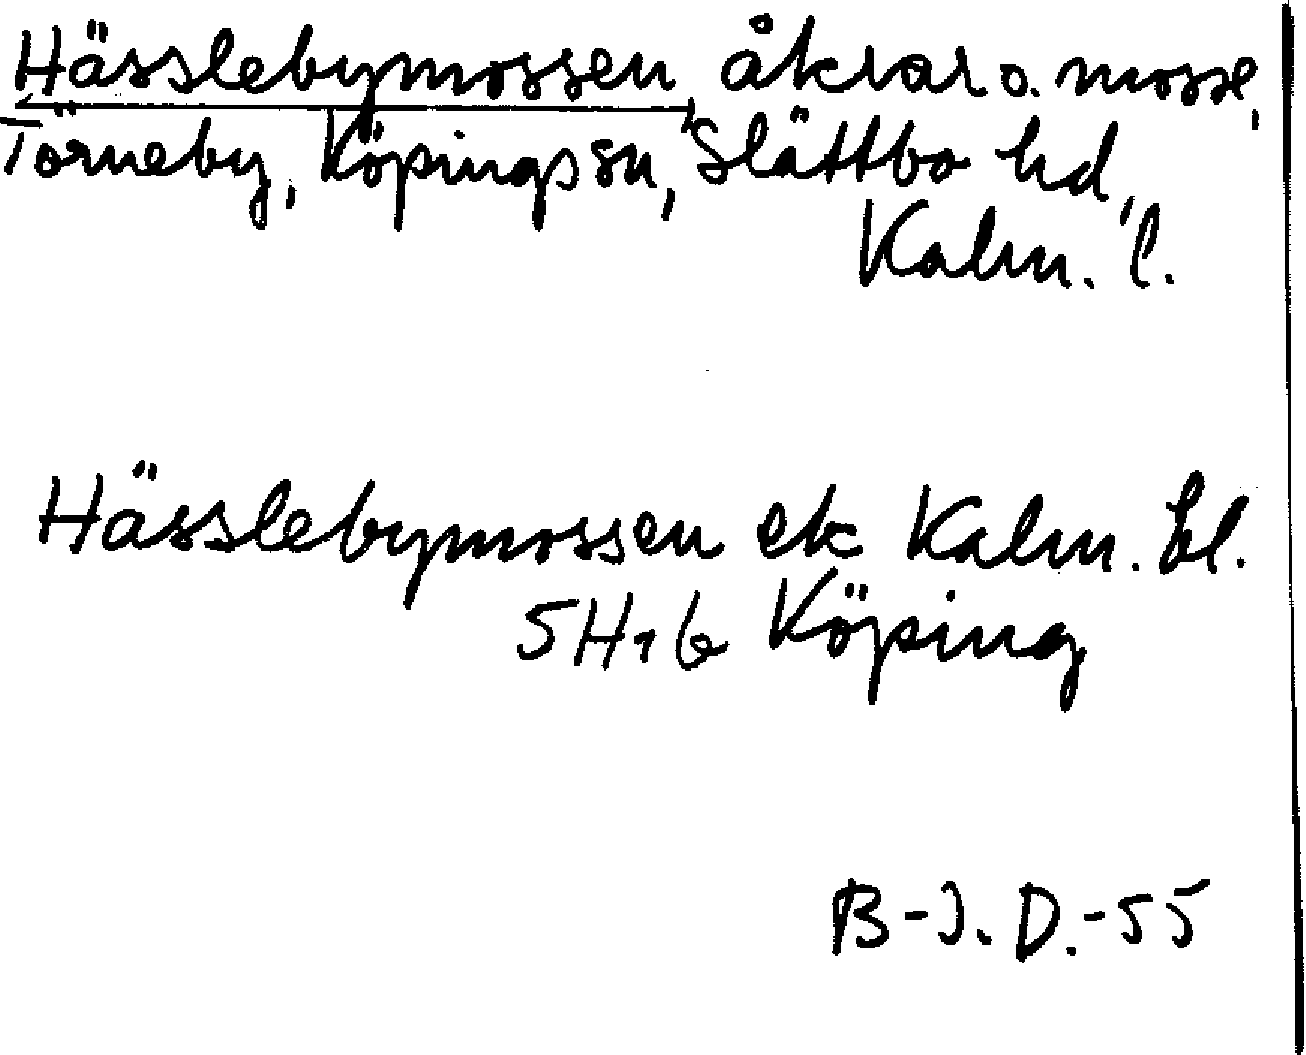 Hässlebymossen, åkrar o. mosse,
Törneby, Köpings sn, Slättbo hd,
Kalm. l.
Hässlebymossen ek Kalm. bl.
5H1b Köping
B-J. D.-55